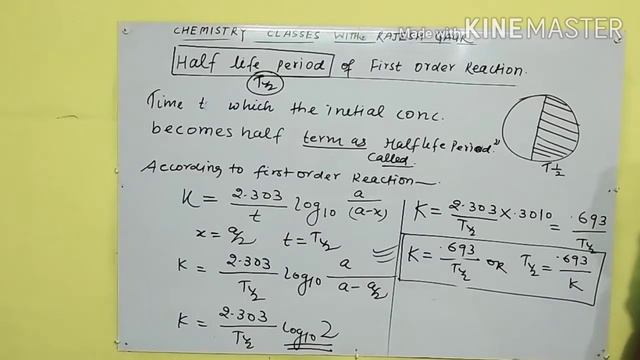 CHEMISTRY CLASSES WITH RAJESH GAUR
Made with KINEMASTER
Half life period of First Order Reaction.
T½
Time t which the initial conc.
becomes half term as Half life Period."
called.
T½
According to first order Reaction—
K = 2.303/t log₁₀ a/(a-x)
x = a/2 t = T½
K = 2.303/T½ log₁₀ a/a - a/2
K = 2.303/T½ log₁₀ 2
K = 2.303/T½ × .3010 = .693/T½
K = .693/T½ OR T½ = .693/K